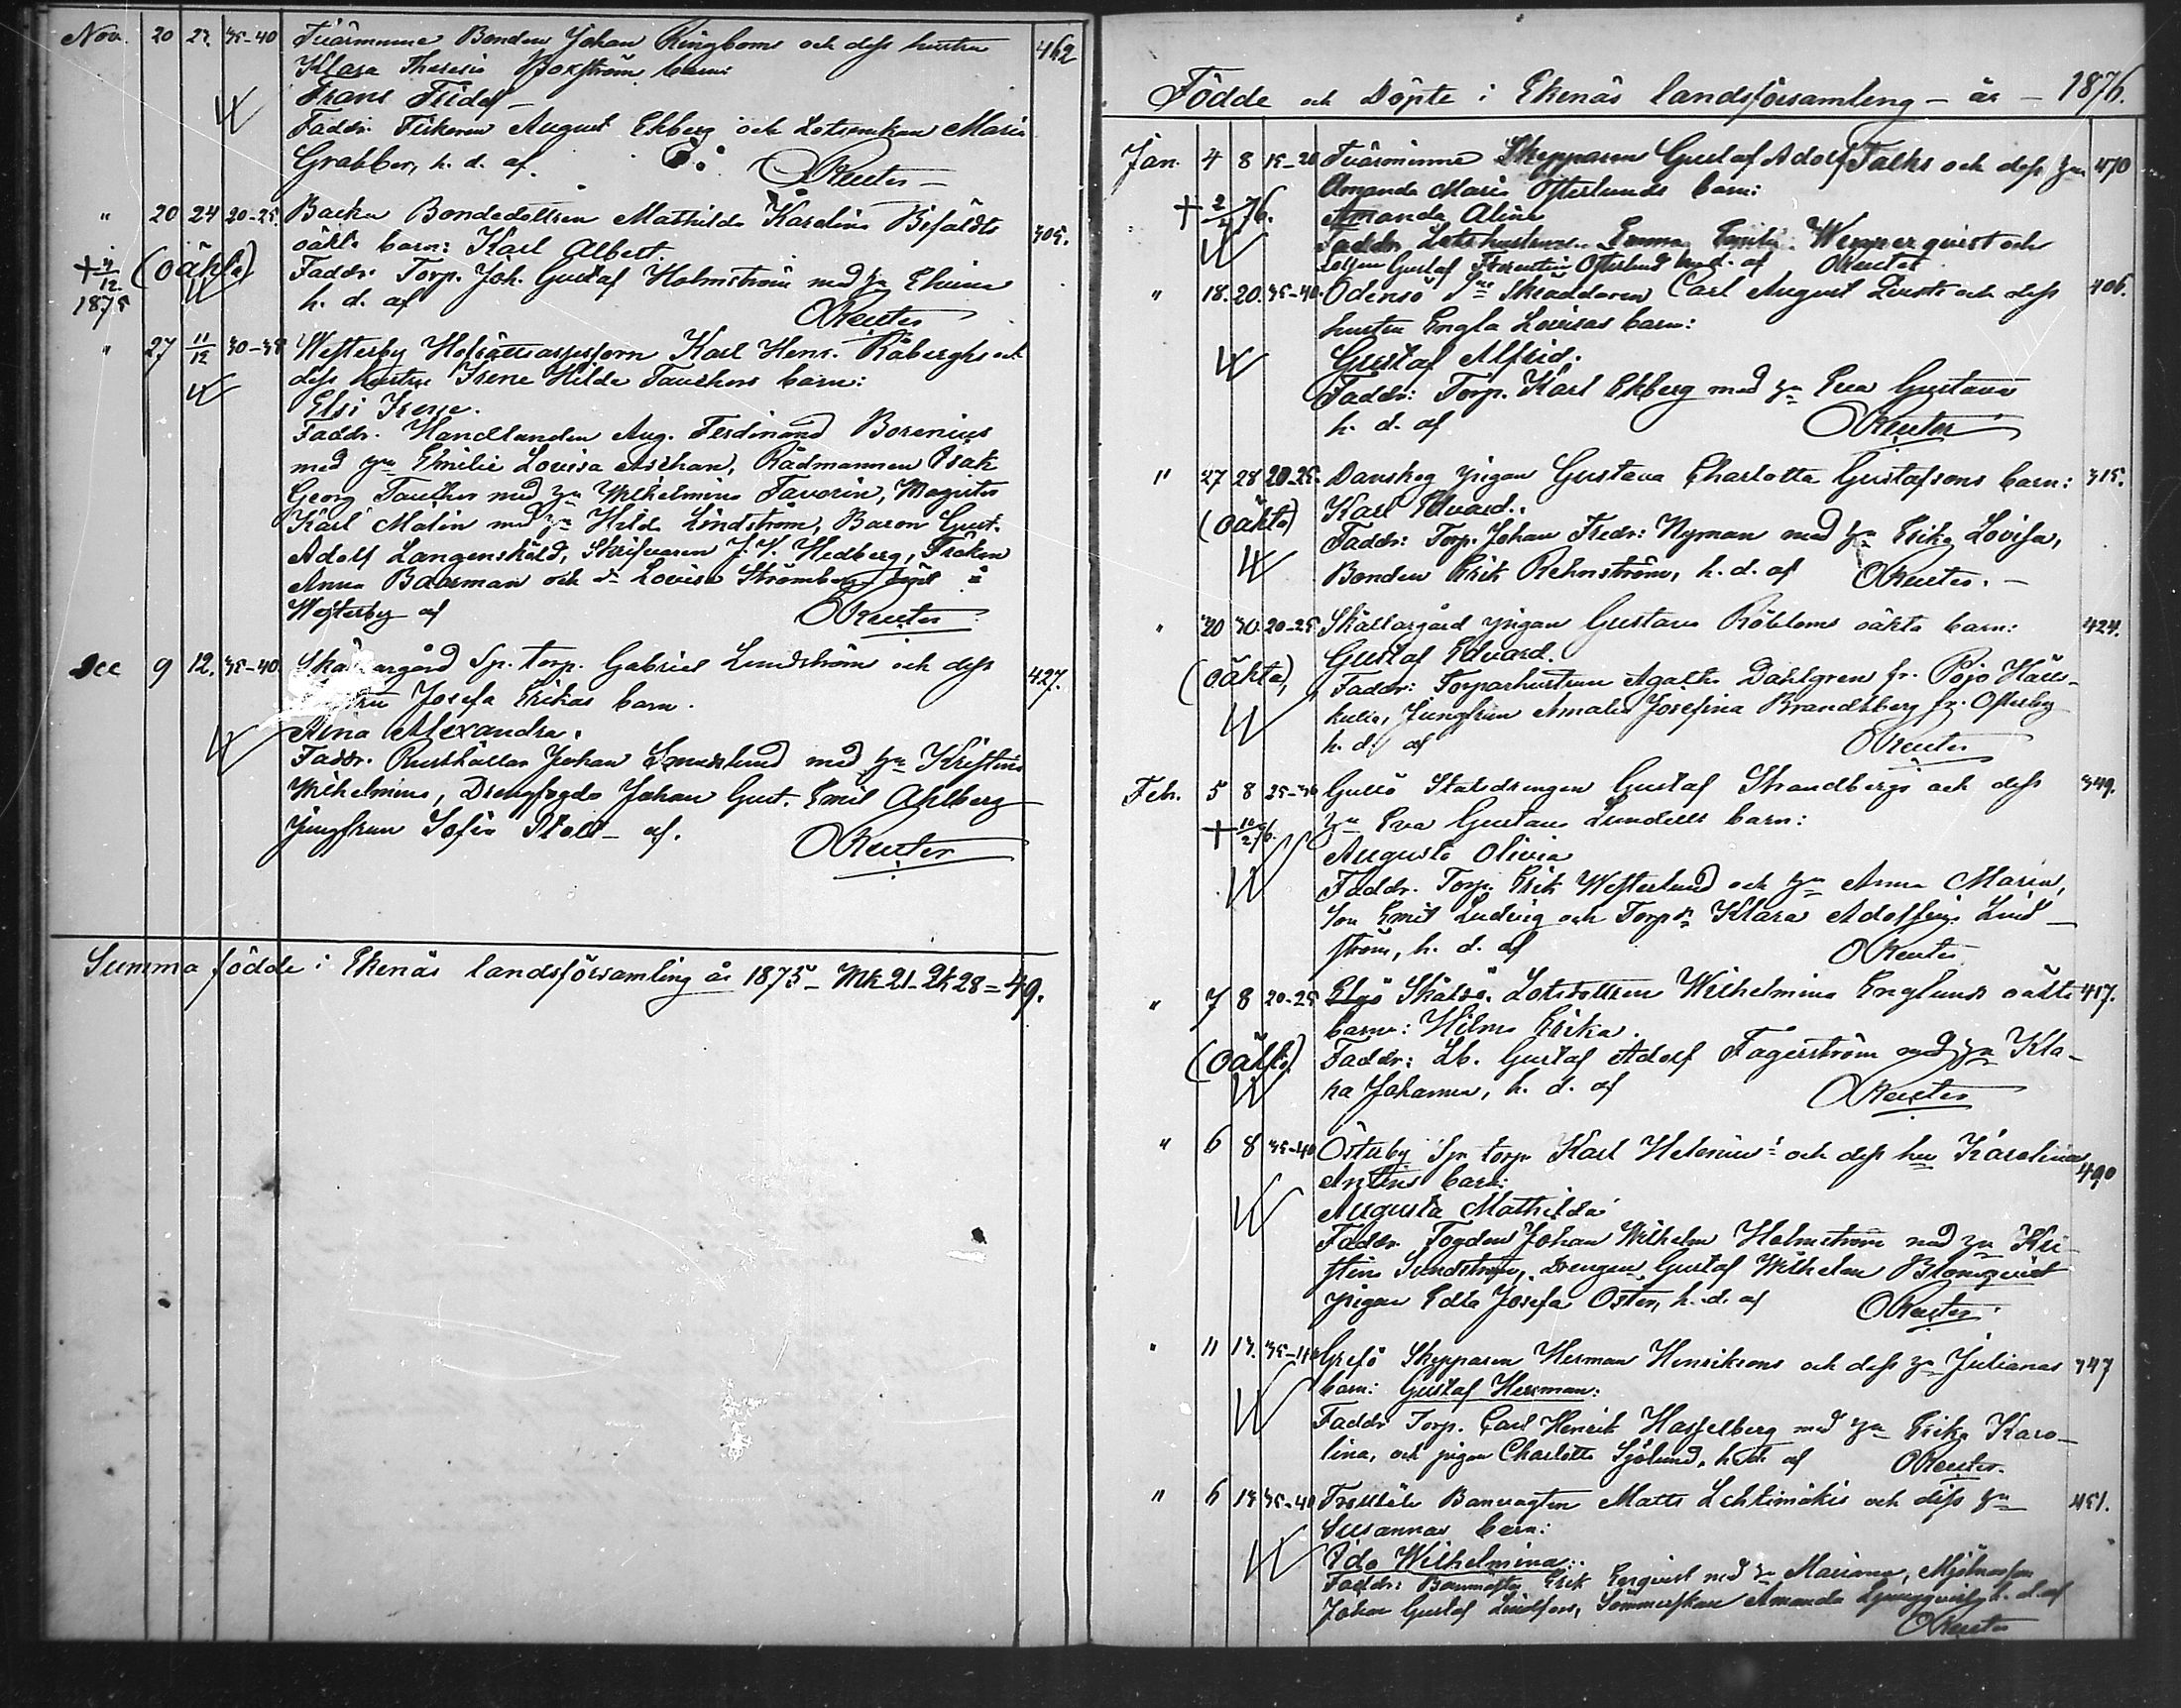 Nov. 20 27. 35-40 Tvärminne Bonden Johan Ringboms och dess hustru 462
Klara Theresia Boxström barn:
Frans Fridolf –
Faddr. Fiskaren August Ekberg och Lotsenkan Maria
Grabber, h. d. af. OReuter –
" 20 24 20-25. Backa Bondedottren Mathilda Karolina Bifäldts 305.
oäkta barn: Karl Albert.
+ 4/12 1875 (oäkta) Faddr. Torp. Joh. Gustaf Holmström med hu
h. d. af OReuter
" 27 11/12 30-35 Westerby Hofrättsassessorn Karl Henr. Råberghs och
dess hustru Irene Hilda Fauchers barn:
Elsi Irene.
Faddr. Handlanden Aug. Ferdinand Borenius
med hu Emilie Lovisa Aschan, Rådmannen Isak
Georg med hu Wilhelmina Favorin, Magister
Karl Malin med hu Hilda Lindström, Baron Gust.
Adolf Langenskiöld, Skrifvaren J. V. Hedberg, Fröken
Anna Baarman och Lovisa Strömberg döpt i
Westerby af OReuter
Dec 9 12. 35-40 Skällargård Sp. torp. Gabriel Lundström och dess 427.
hustru Josefa Erikas barn.
Alma Alexandra.
Faddr. Rusthållar Johan Smedslund med hu Kristina
Wilhelmina, Drengfogde Johan Gust. Emil Ahlberg
Jungfrun Sofia Stolt – af. OReuter
Summa födde i Ekenäs landsförsamling år 1875 – Mk 21 – Qk 28 = 49.
Födde och Döpte i Ekenäs landsförsamling – år – 1876.
Jan. 4 8 15-20 Tvärminne Skepparen Gustaf Adolf Falks och dess hu 470
Amanda Maria Österlunds barn:
+ 2/4 76. Amanda Alina
Faddr. Lotshustrun Emma Emilia Wepperqvist och
Lotsen Gustaf Florentin Österlund h. d. af OReuter
" 18. 20. 35-40. Odensö Skräddaren Carl August och dess 406.
hustru Engla Lovisas barn:
Gustaf Alfrid.
Faddr: Torp. Karl Ekberg med hu Eva Gustava
h. d. af OReuter
" 27 28 20-25. Danskog pigan Gustava Charlotta Gustafsons barn: 315.
(oäkta) Karl Edvard.
Faddr: Torp. Johan Fredr: Nyman med hu Erika Lovisa,
Bonden Erik Rehnström, h. d. af OReuter. –
" 30 30 20-25 Skällargård pigan Gustava Röbloms oäkta barn: 424.
Gustaf Edvard.
(oäkta), Faddr: Torparhustrun Agatha Dahlgren fr. Pojo
Jungfrun Amalia Josefina Brandtberg fr. Österby
h. d. af OReuter
Feb. 5 8 25-30 Gullö Statdrengen Gustaf Strandbergs och dess 349.
+ 10/2 76. hu Eva Gustava Lundells barn:
Augusta Olivia
Faddr. Torp. Erik Westerlund och hu Anna Maria,
son Emil Ludvig och Klara Adolfina Lind
ström, h. d. af OReuter
" 7 8 20-25 Elgö Skåldö. Lotsdottren Wilhelmina Englunds oäkta 417.
barn: Hilma Erika.
(oäkta) Faddr: Lb. Gustaf Adolf Fagerström med hu Kla-
ra Johanna, h. d. af OReuter
" 6 8 35-40 Österby Sp. torp. Karl Helenius och dess hu Karolina
Antins barn: 490
Augusta Mathilda
Faddr. Fogden Johan Wilhelm Holmström med hu Kri
stina Sundström, Drengen Gustaf Wilhelm Blomqvist
pigan Edla Josefa Öster, h. d. af OReuter.
" 11 13. 35-40 Grefö Skepparen Herman Henriksons och dess hu Julianas 347
barn: Gustaf Herrman:
Faddr Torp. Carl Henrik Hasselberg med hu Erika Karo-
lina, och pigan Charlotta Sjölund, h. d. af OReuter.
" 6 13 35-40 Trollböle Banvagten Matts Lehtimäkis och dess hu 451.
Susannas barn:
Ida Wilhelmina.
Faddr: Banmästar Erik Enqvist med hu Mariana,
Johan Gustaf Lindfors, Sömmerskan Amanda Ljungqvist, h. d. af
OReuter